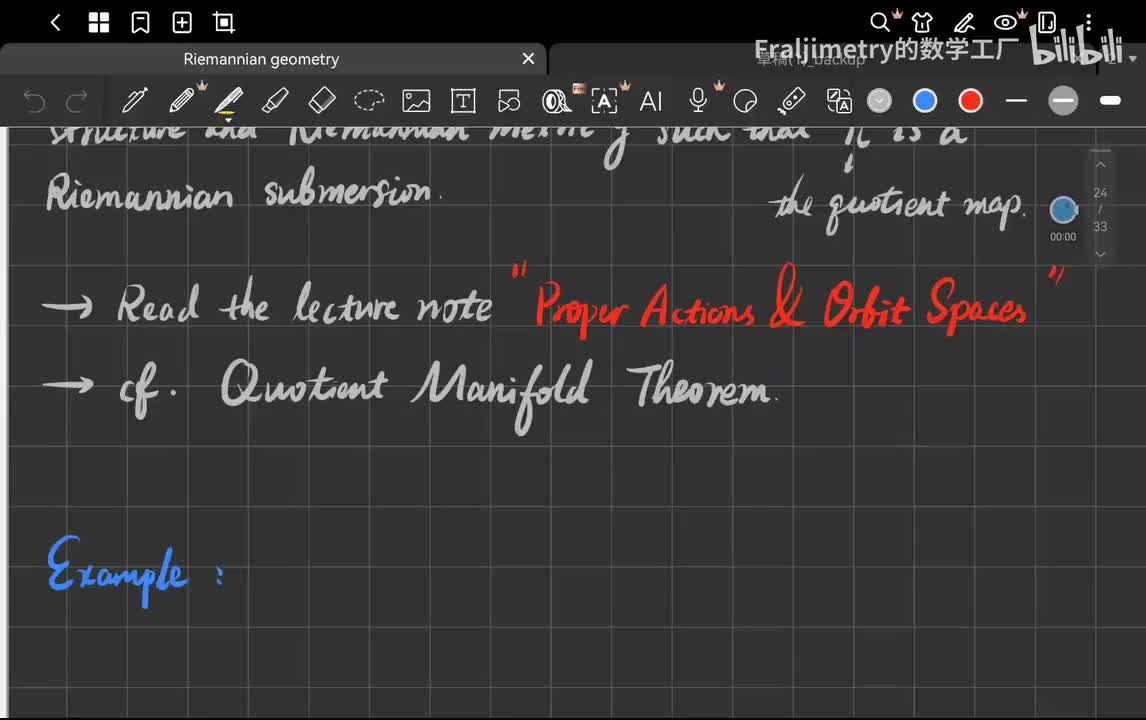 Fraljimetry的数学工厂 bilibili
Riemannian geometry
草稿(1)_backup
Free
T
A
AI
structure and Riemannian metric g such that π is a
Riemannian submersion.
the quotient map.
24
/
33
00:00
→ Read the lecture note "Proper Actions & Orbit Spaces"
→ cf. Quotient Manifold Theorem.
Example :